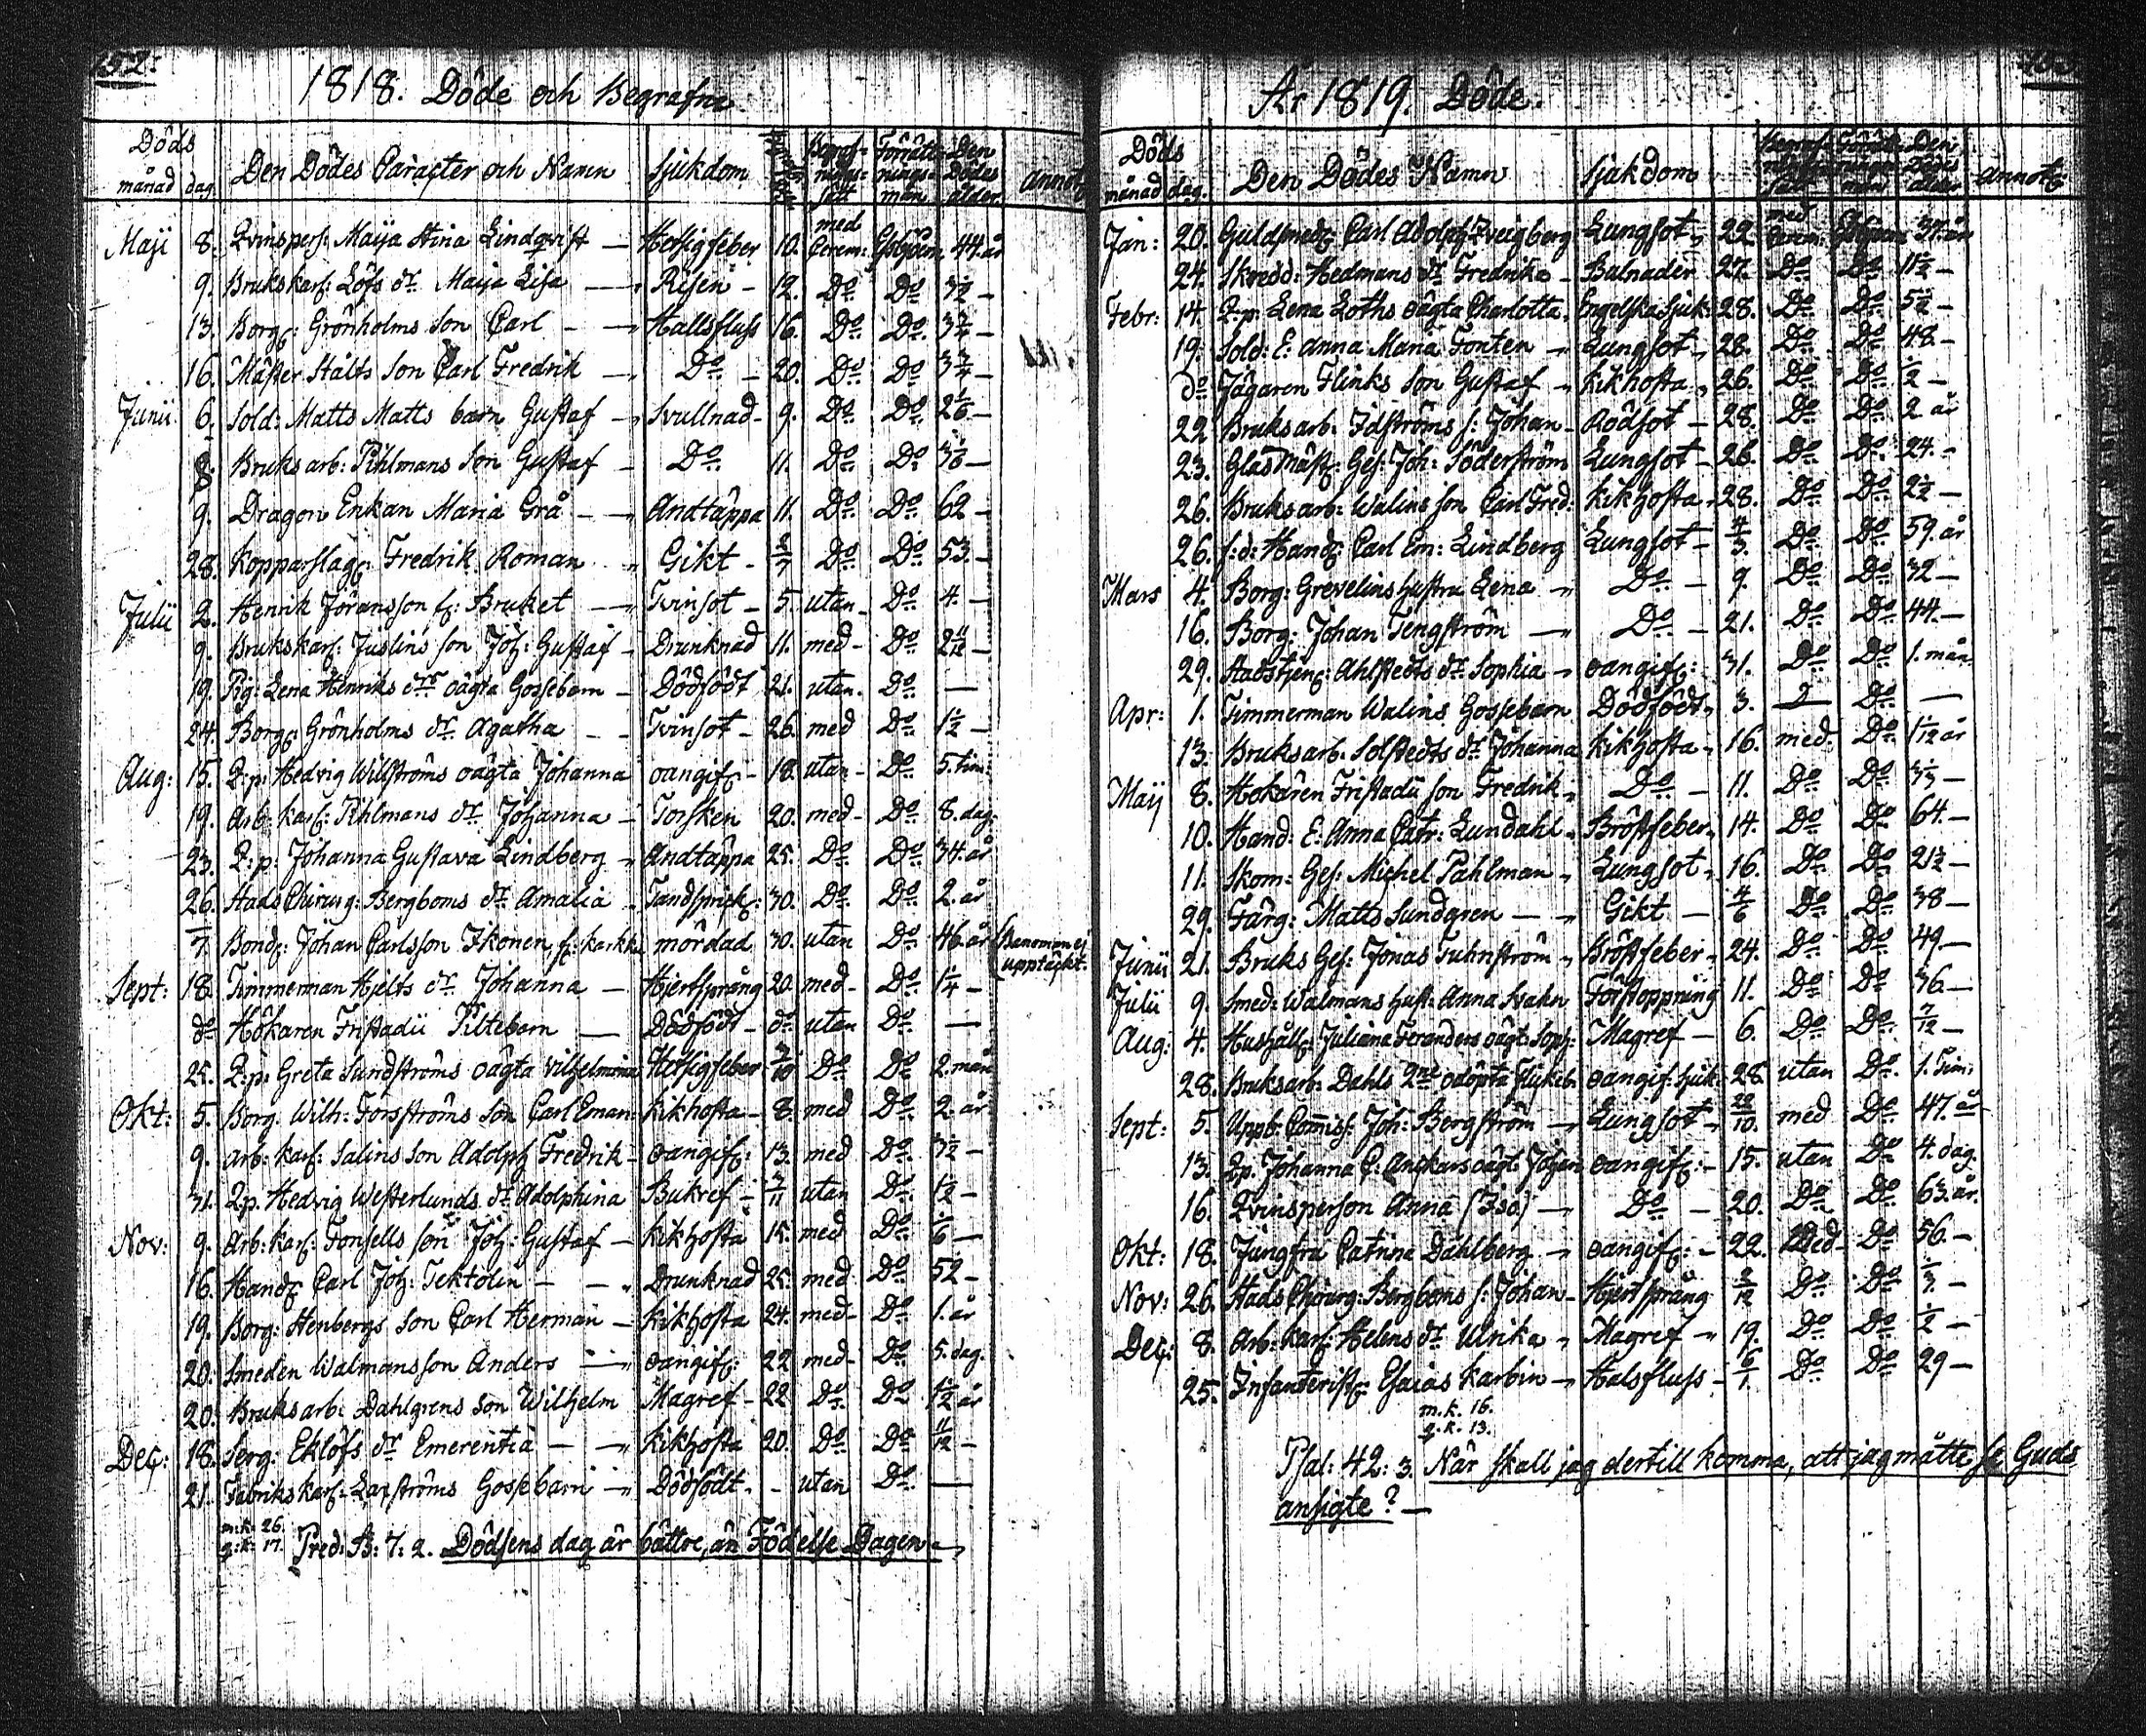 152:
1818. Döde och Begrafne
Döds
månad dag. Den Dödes Caracter och Namn Sjukdom Begrafnings-sätt Förrättnings-man Den Dödes ålder Annot:
Maji 8. Qvinspers: Maija Stina Lindqvist — Hetsigfeber 10. med Cerem: 44. år
9. Brukskarl: Löfs dr. Maija Lisa — Risen - 12. Do Do
13. Borg: Grönholms Son Carl - — Hallsfluss 16. Do Do
16. Mäster Stålts Son Carl Fredrik — Do - 20. Do Do
Junii 6. Sold: Matts Matts barn Gustaf — Svullnad - 9. Do Do 2 1/6 -
8. Bruksarb: Pihlmans Son Gustaf - Do 11. Do Do
9. Dragon Enkan Maria Grå - — Andtäppa 11. Do Do 62 -
28. Kopparslag: Fredrik Roman Gikt - Do Do 53. -
Julii 2. Henrik Göransson fr: Bruket — Tvinsot - 5. utan Do 4. -
9. Brukskarl: Juslins Son Joh: Gustaf - Drunknad 11. med - Do 2 11/12 -
19. Pig: Lena Henriks drs oägta Gossebarn - Dödfödt 21. utan. Do —
24. Borg: Grönholms dr. Agatha - - Tvinsot - 26. med Do 1 1/2 -
Aug: 15. Q:p: Hedvig Willströms oägta Johanna oangif: - 18. utan - Do 5. tim:
19. Arb: karl: Pihlmans dr Johanna - Torsken 20. med - Do 8. dag.
23. Q:p: Johanna Gustava Lindberg Andtäppa 25. Do Do 34. år
26. Stads Chirurg: Bergboms dr. Amalia Tandsprick: 30. Do Do 2. år
7 Bond: Johan Carlsson Ikonen, fr: Karkk: mördad 30. utan Do 46. år Banoman ej upptäckt.
Sept: 18. Timmerman Hjelts dr Johanna — Hjertsprång 20. med - Do 1/4 -
do Hökaren Fristadii Piltebarn — Dödfödt - do utan Do —
25. Q:p: Greta Sundströms oägta Vilhelmina Hetsigfeber Do Do 2. mån
Okt: 5. Borg: Wilh: Forsströms Son Carl Eman: Kikhosta - 8. med Do 2. år
9. Arb: karl: Salins Son Adolph Fredrik - oangif: - 13. med Do
31. Q:p. Hedvig Westerlunds dr Adolphina Bukref - utan Do 1 1/2 -
Nov: 9. Arb: Karl: Fonsells Son Joh: Gustaf - Kikhosta 15. med Do 1/6 —
16. Hand: Carl Joh: Tektolin - - Drunknad 25. med Do 52 -
19. Borg: Stenbergs Son Carl Herman - Kikhosta 24. med - Do 1. år
20. Smeden Walmans son Anders — oangif: 22 med - Do 5. dag.
20. Bruksarb: Dahlgrens Son Wilhelm Magref - 22 Do Do 1 1/2 år
Dec: 18. Serg: Eklöfs dr Emerentia - — Kikhosta 20. Do Do 11/12 -
21. Fabrikskarl: Laxströms Gossebarn — Dödfödt - - utan Do —
m:k: 26.
q:k: 17. Pred: B: 7: 2. Dödsens dag är bättre, än Födelse Dagen —
År 1819. Döde.
Döds
månad dag. Den Dödes Namn Sjukdom Den Dödes ålder Annot:
Jan: 20. Guldsmed: Carl Adolph Zveigberg Lungsot 22. med Cerem: 37. år
24. Skredd: Hedmans dr Fredrika - Bulnader 27. Do Do 11 1/2 -
Febr: 14. Q:p: Lena Loths oägta Charlotta. Engelska Sjuk: 28. Do Do 5 1/2 -
19. Sold: E: Anna Maria Fonten - Lungsot - 28. Do Do 48. -
do Jägaren Flinks Son Gustaf - Kikhosta - 26. Do Do 1/2 -
22. Bruksarb: Idströms s: Johan - Rödsot - 28. Do Do 2 år
23. Glas Mäst: Ges: Joh: Söderström Lungsot - 26. Do Do 24. -
26. Bruksarb: Walins Son Carl Fred: Kikhosta - 28. Do Do 2 1/2 -
26. f:d: Hand: Carl Em: Lindberg Lungsot - 4/3. Do Do 59. år
Mars 4. Borg: Grevelins hustru Lena - Do - 9. Do Do 32 -
16. Borg: Johan Tengström — Do - 21. Do Do 44. -
29. Stadstjen: Ahlstedts dr. Sophia - oangif: 31. Do Do 1. mån.
Apr: 1. Timmerman Walins Gossebarn Dödfödt 3. Do —
13. Bruksarb: Solstedts dr Johanna Kikhosta - 16. med. Do 1 1/12 år
Maij 8. Hökaren Fristadii Son Fredrik - Do - 11. Do Do
10. Hand: E: Anna Catr: Lundahl - Bröstfeber - 14. Do Do 64. -
11. Skom: Ges: Michel Pahlman - Lungsot - 16. Do Do 21 1/2 -
29. Färg: Matts Sundgren — Gikt - 4/6 Do Do 38 -
Junii 21. Bruks Ges: Jonas Tuhnström - Bröstfeber - 24. Do Do 49. -
Julii 9. Smed: Walmans hust: Anna Svahn Förstoppning 11. Do Do 36. -
Aug: 4. Hushåll: Juliana Feranders oägt: Soph: Magref - 6. Do Do 7/12 -
28. Bruksarb: Dahls 2ne odöpta flickeb: oangif: Sjuk: 28. utan Do 1. Tim:
Sept: 5. Uppb: Comiss: Joh: Bergström - Lungsot - 22/10. med Do 47. år
13. Q:p. Johanna C: Anckars oägt: Johan oangif: - 15. utan Do 4. dag.
16. Qvinsperson Anna (Iso) — Do - 20. Do Do 63. år.
Okt: 18. Jungfru Catrina Dahlberg - oangif: - 22. Med - Do 56. -
Nov: 26. Stads Chirurg: Bergboms s: Johan - Hjertsprång 2/12 Do Do 1/3 -
Dec: 8. Arb: Karl: Helens dr Ulrika - Magref - 19. Do Do 1/2 -
25. Infanterist: Esaias Karbin - Halsfluss - 6/1. Do Do 29 -
m.k. 16.
q.k. 13.
Psal: 42: 3. När skall jag dertill komma, att jag måtte se Guds
ansigte? —